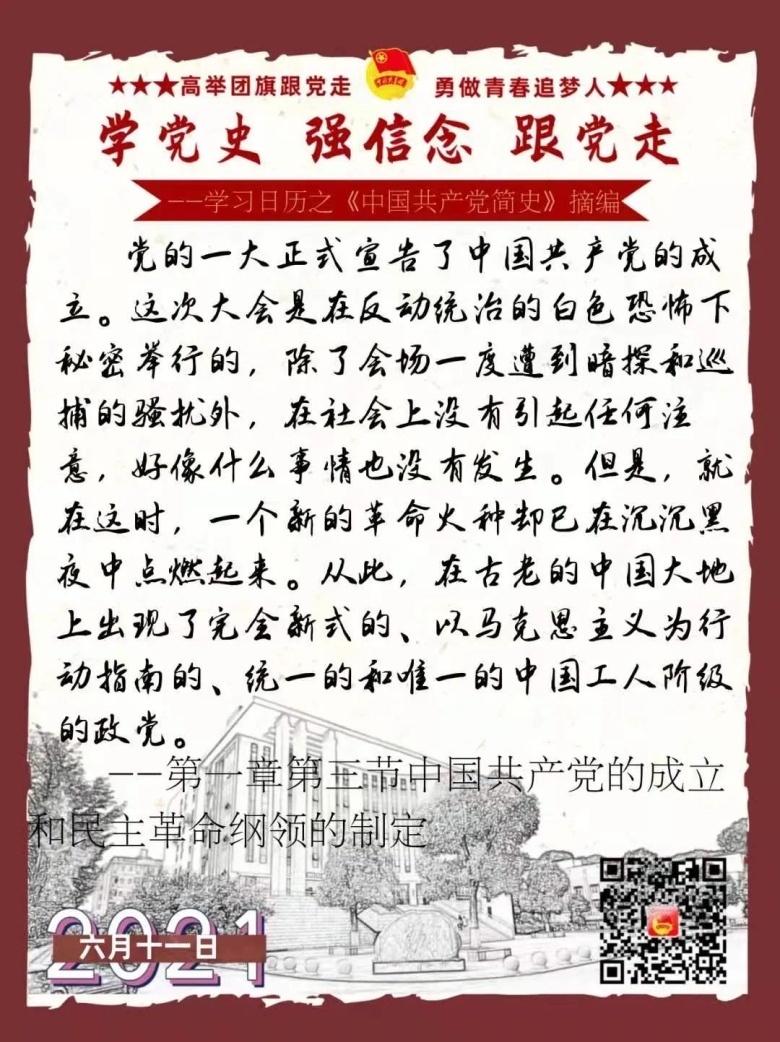 ★★★高举团旗跟党走 勇做青春追梦人★★★
学党史 强信念 跟党走
——学习日历之《中国共产党简史》摘编
党的一大正式宣告了中国共产党的成
立。这次大会是在反动统治的白色恐怖下
秘密举行的，除了会场一度遭到暗探和巡
捕的骚扰外，在社会上没有引起任何注
意，好像什么事情也没有发生。但是，就
在这时，一个新的革命火种却已在沉沉黑
夜中点燃起来。从此，在古老的中国大地
上出现了完全新式的、以马克思主义为行
动指南的、统一的和唯一的中国工人阶级
的政党。
——第一章第三节中国共产党的成立
和民主革命纲领的制定
2021
六月十一日